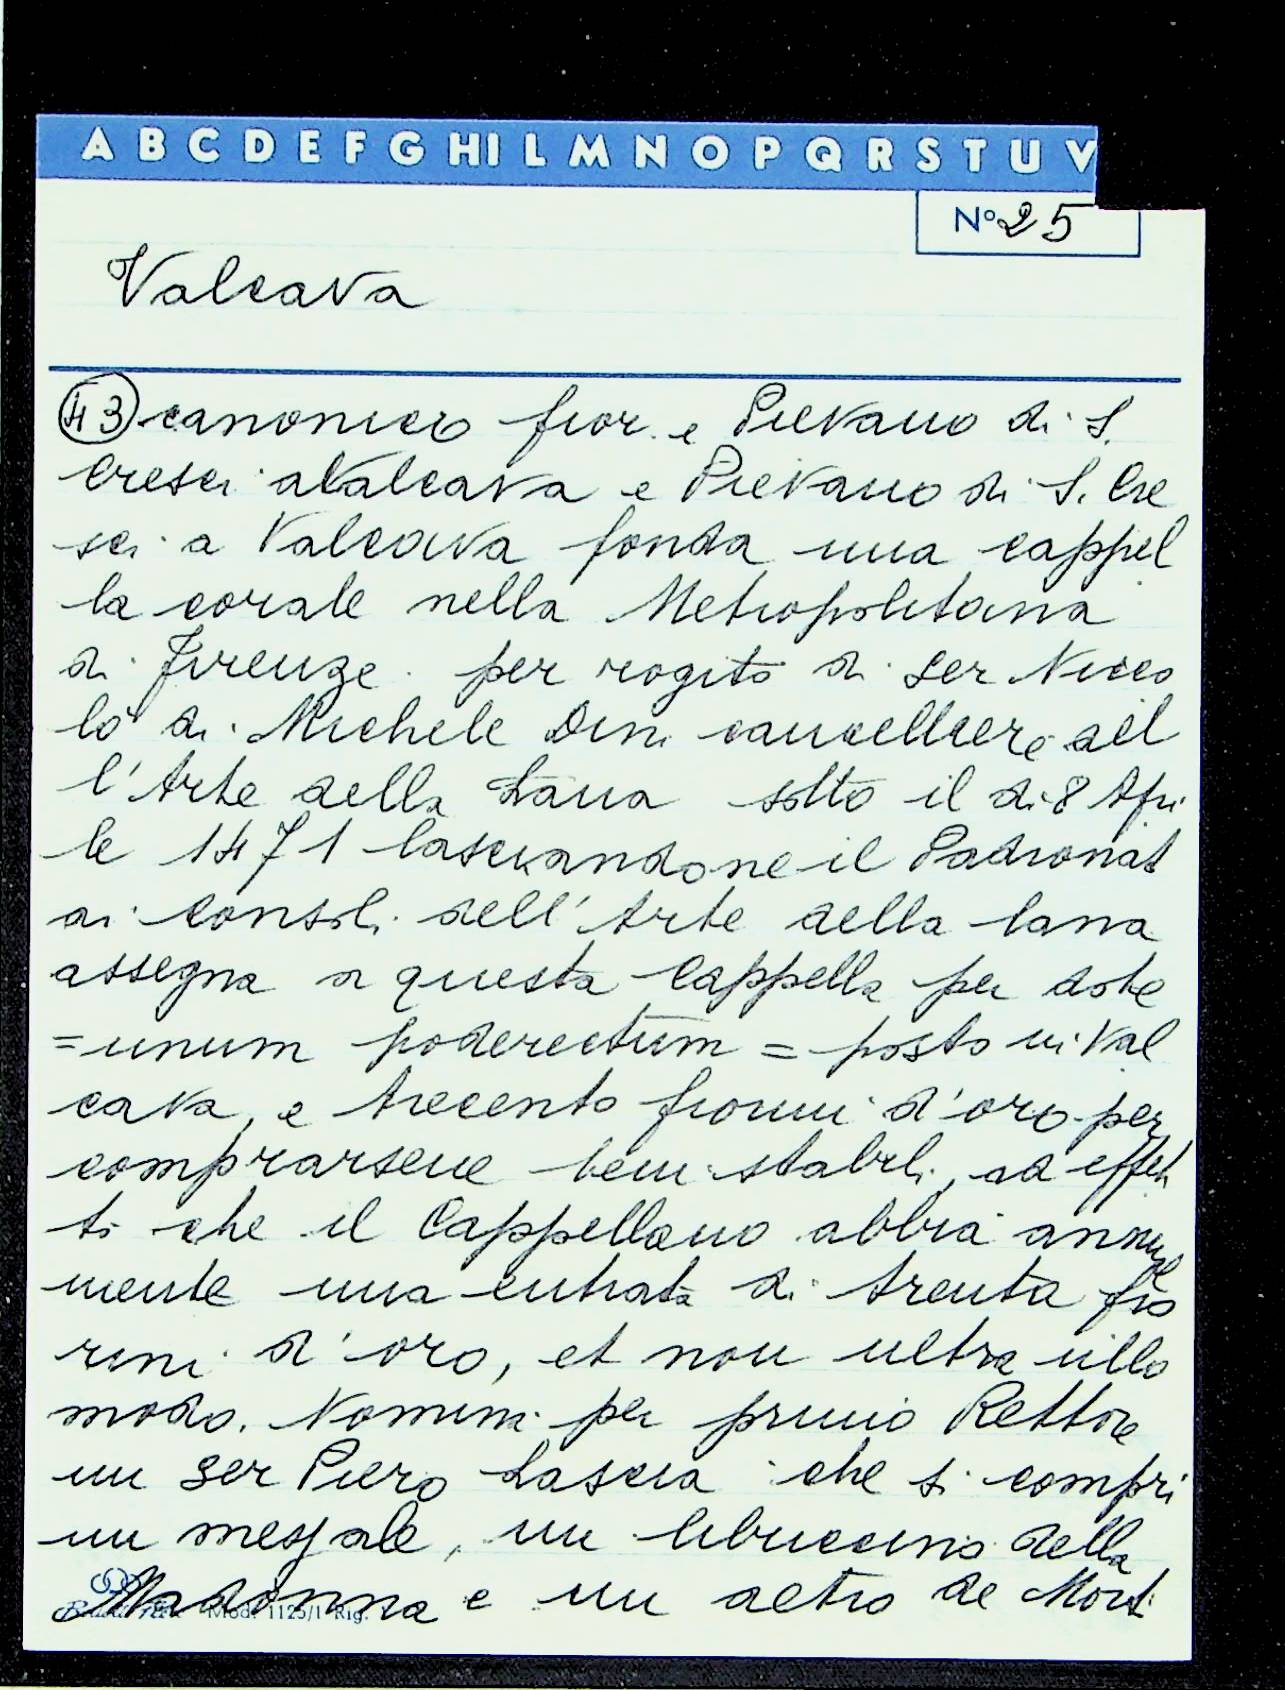 A B C D E F G H I L M N O P Q R S T U V
N° 25
Valcava
43 canonico fior. e Pievano di S.
Cresci a Valcava e Pievano di S. Cre
sci a Valcava fonda una cappel
la corale nella Metropolitana
di Firenze per rogito di ser Nicco
lò di Michele Dini cancelliere del
l'Arte della Lana sotto il dì 8 Apri
le 1471 lasciandone il Padronat
ai Consoli dell'Arte della lana
assegna a questa Cappella per dote
= unum poderectum = posto in Val
cava, e trecento fiorini d'oro per
comprarsene beni stabili, ad effet
ti che il Cappellano abbia annual
mente una entrata di trenta fio
rini d'oro, et non ultra ullo
modo. Nomina per primo Rettore
un ser Piero Lascia che si compri
un messale, un libriccino della
Madonna e un altro de Mort
Mod. 1125/1 Rig.